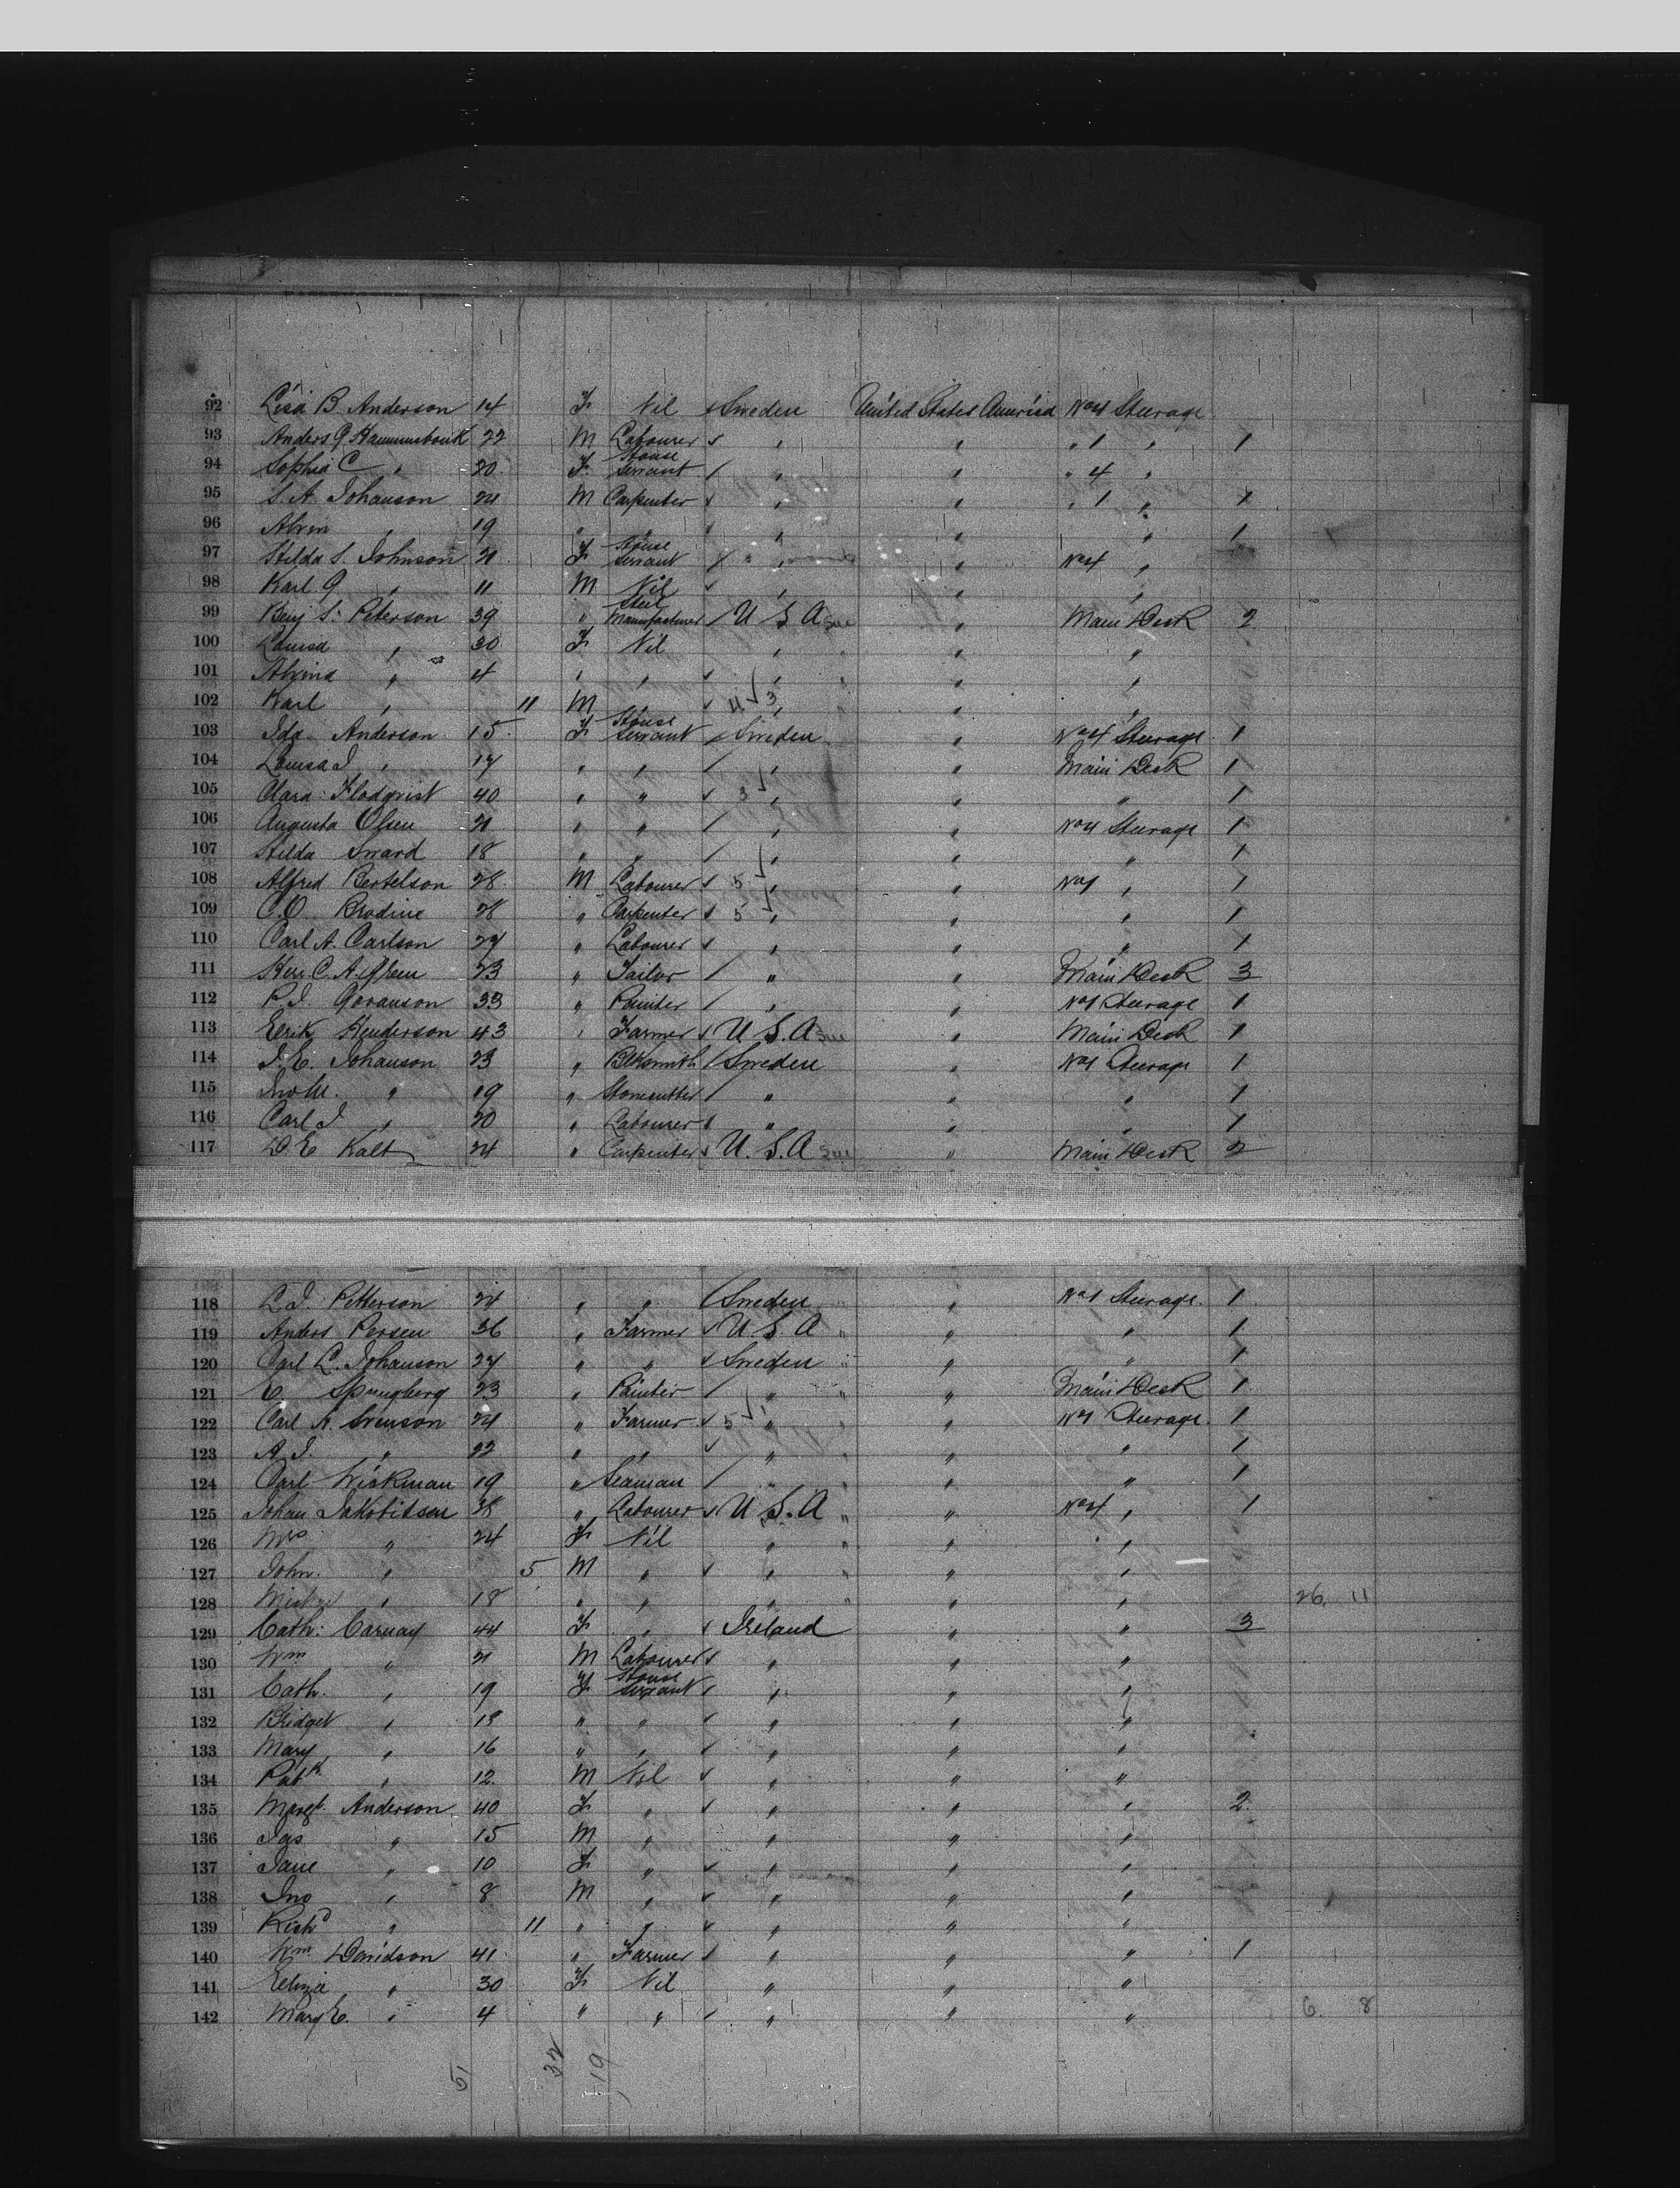 92 Lisa B Anderson 14 F Nil Sweden United States America No 4 Steerage
93 Anders G 22 M Labourer " " " 1 " 1
94 Sophia C " 20 F House Servant " " " 4 "
95 S. A. Johanson 24 M Carpenter " " " 1 " 1
96 Alvin " 19 " " " " " 1
97 Hilda S. Johnson 21 F House Servant " " No 4 "
98 Karl G " 11 M Nil " " "
99 Benj S. Peterson 39 " Steel Manufacturer U S A " Main Deck 2
100 Louisa " 30 F Nil " " "
101 Alvina " 4 " " " " "
102 Karl " 11 M " 4 3 " " "
103 Ida Anderson 15 F House Servant Sweden " No 4 Steerage 1
104 Louisa J " 17 " " " " Main Deck 1
105 Clara Flodqvist 40 " " 3 " " " 1
106 Augusta Olsen 21 " " " " No 4 Steerage 1
107 Hilda Sward 18 " " " " " 1
108 Alfred Bertelson 28 M Labourer 5 " " No 1 " 1
109 C. O. Brodine 28 " Carpenter 5 " " " 1
110 Carl A. Carlson 27 " Labourer " " " 1
111 C. A. Olsen 23 " Tailor " " Main Deck 3
112 P. J. Goranson 33 " Painter " " No 1 Steerage 1
113 Erik Henderson 43 " Farmer U. S. A " Main Deck 1
114 J. E. Johanson 23 " Blksmith Sweden " No 1 Steerage 1
115 Jno M. " 19 " Stonecutter " " " 1
116 Carl J " 20 " Labourer " " " 1
117 D E Kalt 24 " Carpenter U. S. A " Main Deck 2
118 L. J. Petterson 24 " " Sweden " No 1 Steerage 1
119 Anders Persen 36 " Farmer U S A " " 1
120 Carl L. Johanson 27 " " Sweden " " 1
121 E. Spungberg 23 " Painter " " Main Deck 1
122 Carl A. Svenson 24 " Farmer 5 " " No 1 Steerage 1
123 A. J. " 22 " " " " " 1
124 Carl Wickman 19 " Seaman " " " 1
125 Johan Jakobitsen 38 " Labourer U S. A " No 4 " 1
126 Mrs " 24 F Nil " " "
127 John " 5 M " " " "
128 " 18 " " " " " 26. 11
129 Cath: Carnay 44 F " Ireland " " 3
130 Wm " 21 M Labourer " " "
131 Cath. " 19 F House Servant " " "
132 Bridget " 18 " " " " "
133 Mary " 16 " " " " "
134 Patk " 12 M Nil " " "
135 Margt. Anderson 40 F " " " " 2
136 Jas " 15 M " " " "
137 Jane " 10 F " " " "
138 Jno " 8 M " " " "
139 Richd " 11 " " " " "
140 Wm Davidson 41 " Farmer " " " 1
141 Eliza " 30 F Nil " " "
142 Mary E. " 4 " " " " " 6. 8
51 32 19